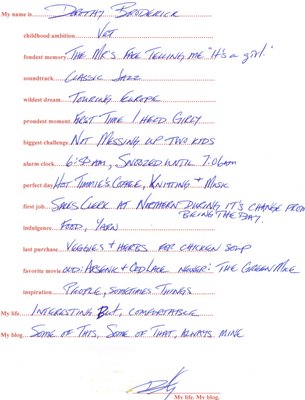 My name is Dorothy Broderick
childhood ambition Vet
fondest memory The Mr's Face Telling me "It's a girl."
soundtrack Classic Jazz
wildest dream Touring Europe
proudest moment First Time I Held Girly
biggest challenge Not Messing Up Two Kids
alarm clock am, Snoozed Until 7:06am
perfect day Hot Timmie's Coffee, Knitting & Music
first job Sales Clerk at Northern During it's change from
Being The Bay.
indulgence Food, Yarn
last purchase Veggies & Herbs for Chicken Soup
favorite movie Old: Arsenic & Old Lace Newer: The Green Mile
inspiration People, Sometimes Things
My life Interesting But, Comfortable
My blog Some of This, Some of That, Always Mine
My life. My blog.